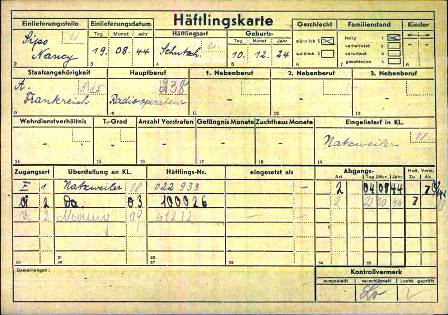 Häftlingskarte
Einlieferungsstelle Einlieferungsdatum Häftlingsart Geburts- Geschlecht Familienstand Kinder
Tag Monat Jahr Tag Monat Jahr männlich weiblich ledig verheiratet verwitwet geschieden
Sipo Nancy 19. 08. 44 Schutzh. 10. 12. 24
Staatsangehörigkeit Hauptberuf 1. Nebenberuf 2. Nebenberuf 3. Nebenberuf
Frankreich Radiooperateur
Wehrdienstverhältnis T.-Grad Anzahl Vorstrafen Gefängnis Monate Zuchthaus Monate Eingeliefert in KL.
Natzweiler
Zugangsart Überstellung an KL. Häftlings-Nr. eingesetzt als Abgangs- Haft. Verw.
Art Tag Mon. Jahr Zu Ab
1 Natzweiler 08 022 933 2 04 09 44
2 Da. 03 100026 2
2 09
Bemerkungen:
Kontrollvermerk
ausgestellt verschlüsselt Lochk. geprüft